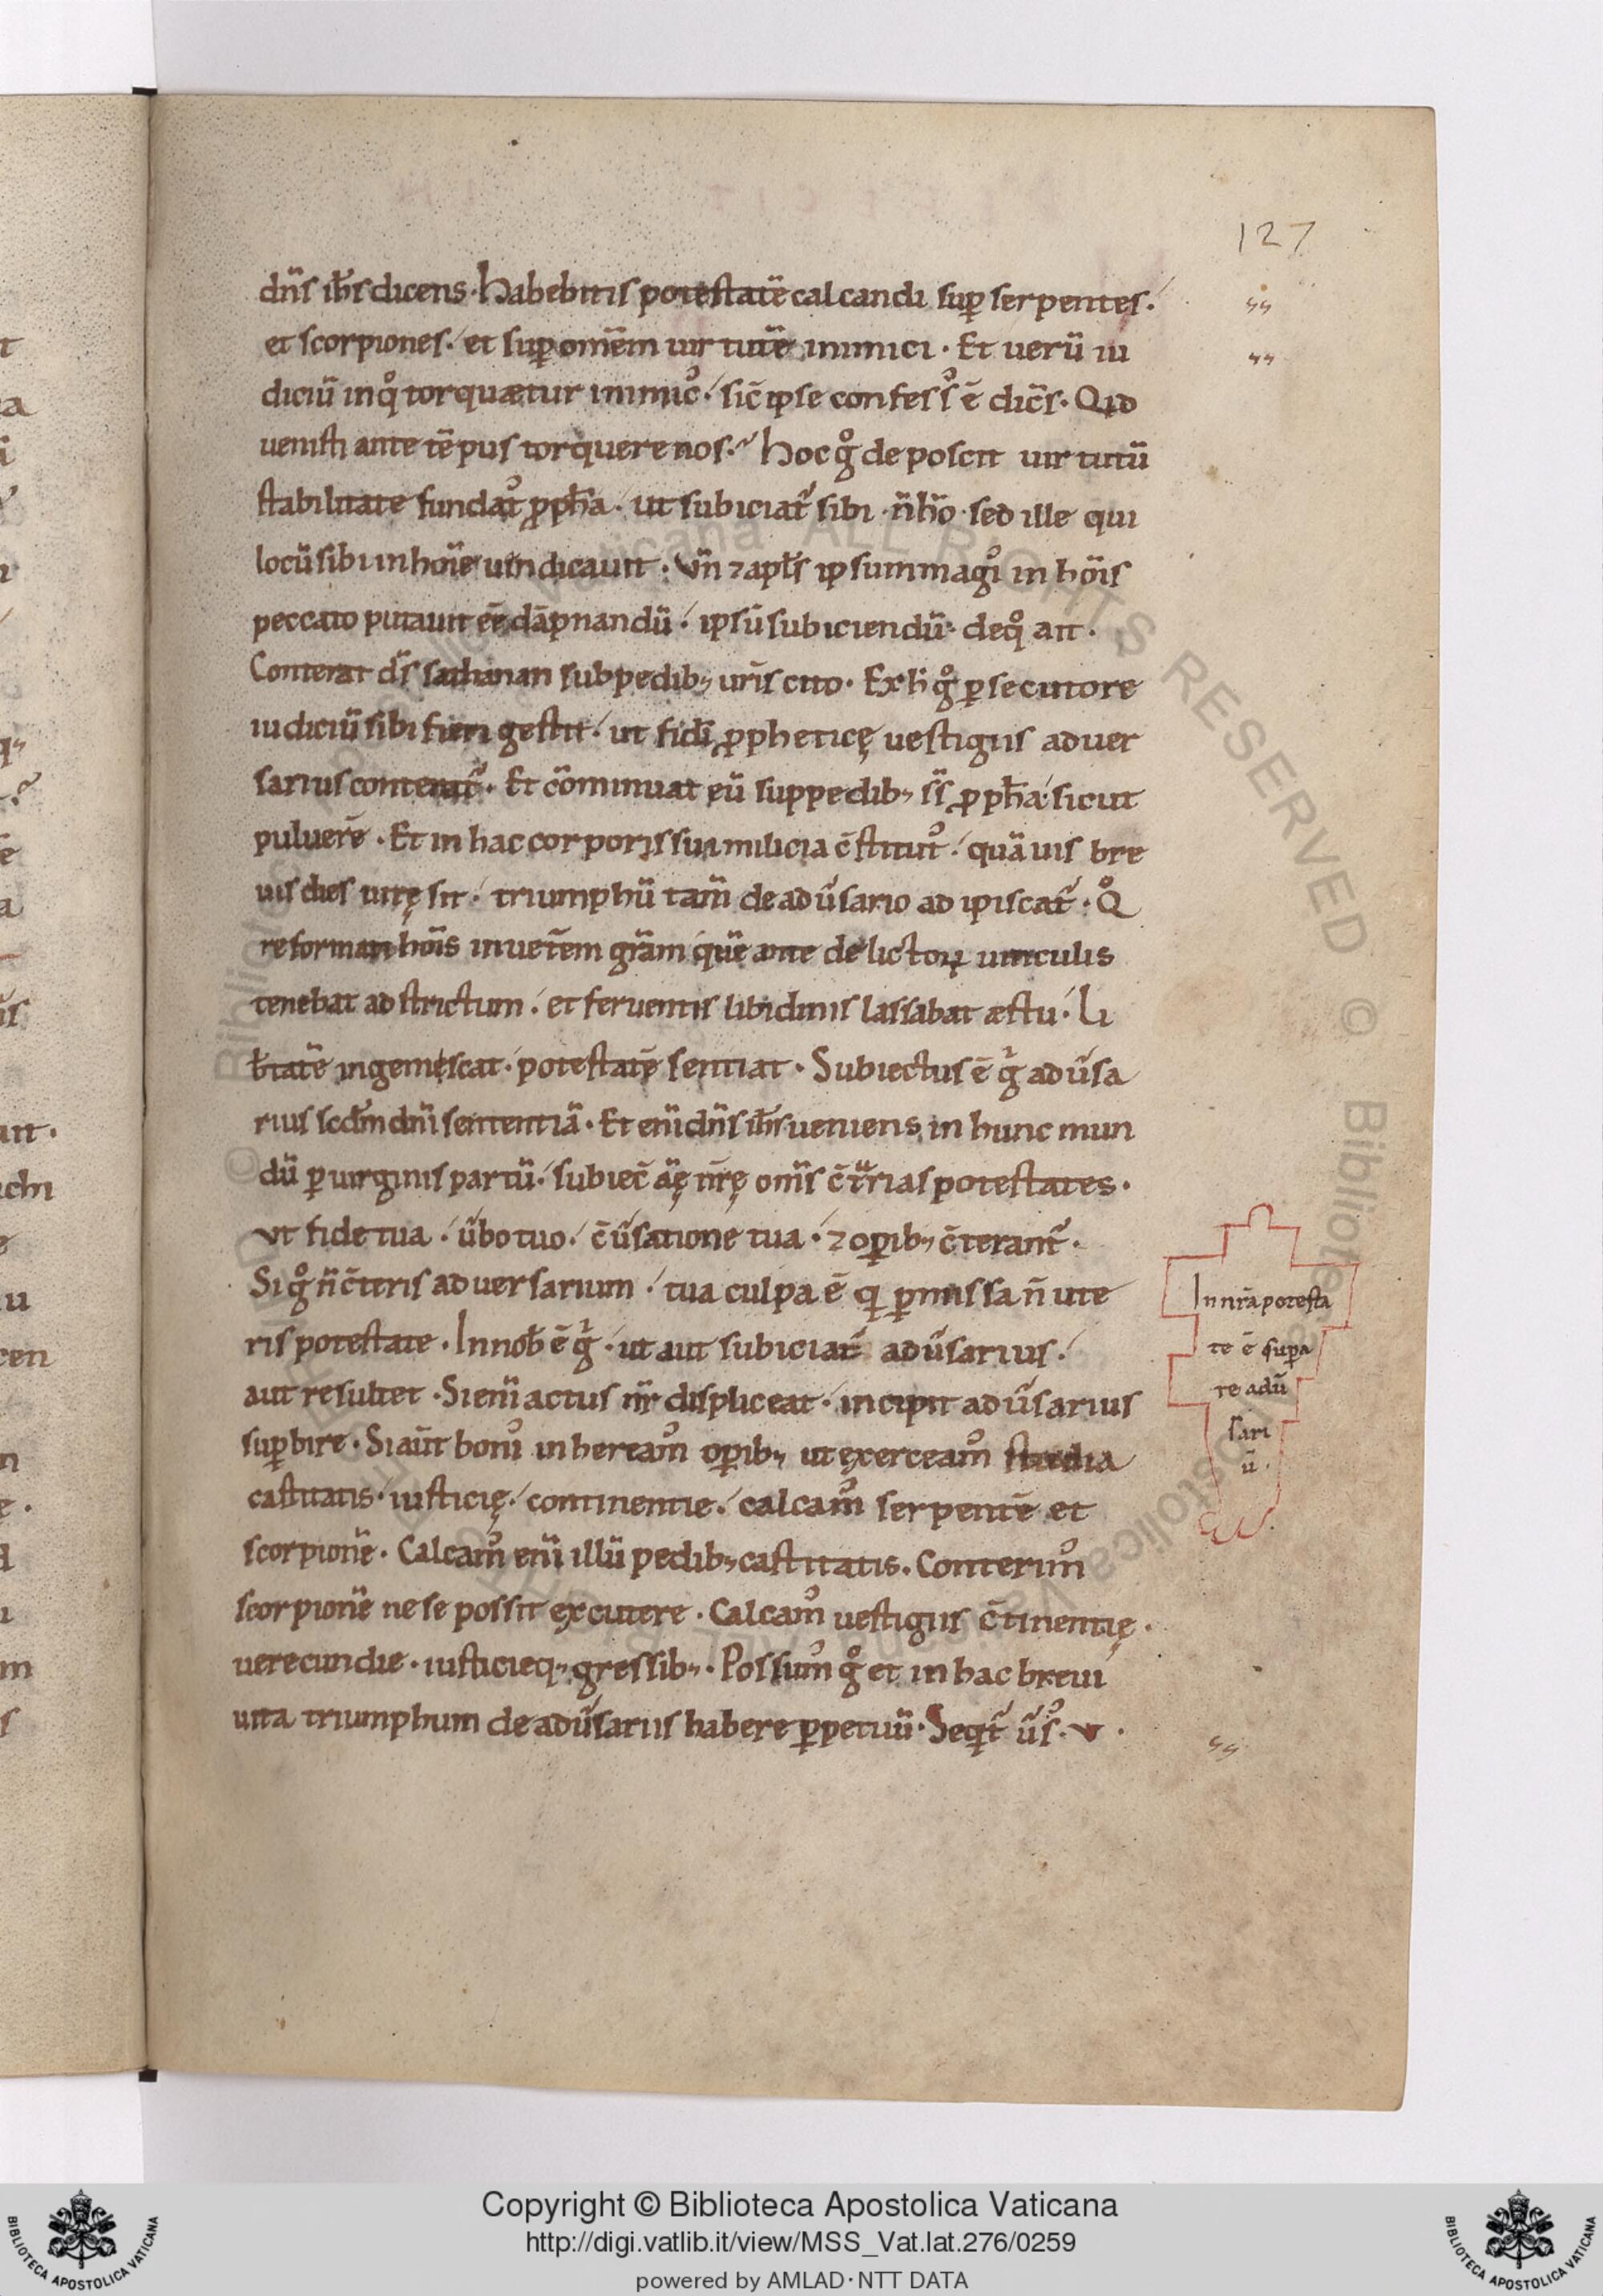 127
dn̄s ih̄s dicens. Habebitis potestatē calcandi sup̱ serpentes.
et scorpiones. et sup̱ omēm uirtutē inimici. Et uerū iu
diciū in qͦ torquætur inimicꝰ. sic̄ ipse confessꝰ ē dic̄s. Qid
uenisti ante tēpus torquere nos. Hoc gͦ deposcit uirtutū
stabilitate fundatꝰ ꝓph̄a. ut subiciat᷑ sibi. n̄ hō. sed ille qui
locū sibi in hoīe uindicauit. Vn̄ ⁊ apl̄s ip̄sum magꝰ in hoīs
peccato putauit eē dāpnandū. ipsū subiciendū. de qͦ ait.
Conterat ds̄ sathanan sub pedib; ur̄is cito. Ex h̄ gͦ ꝑsecutore
iudiciū sibi fieri gestit. ut fidi ꝓpheticę uestigiis aduer
sarius conterat᷑. Et cōminuat eū sup pedib; ss̄ ꝓph̄a sicut
puluerē. Et in hac corporis sui milicia c̄stitutꝰ. quāuis bre
uis dies uitę sit. triumphū tam̄ de adūsario adipiscat᷑. Qͦ
reformari hoīs in uet̄em gr̄am quē ante delictoꝝ uinculis
tenebat adstrictum. et feruentis libidinis lassabat æstu. Li
b̄tatē ingemescat. potestatē sentiat. Subiectus ē gͥ adūsa
rius scd̄m dn̄i sententiā. Et eni dn̄s ih̄s ueniens in hunc mun
dū ꝑ uirginis partū. subiec̄ aīę nr̄ę om̄s c̄trarias potestates.
Vt fide tua. ūbo tuo. c̄ūsatione tua. ⁊ oꝑib; c̄terant᷑.
Si gͦ n̄ c̄teris aduersarium. tua culpa ē qi ꝑmissa n̄ ute
ris potestate. In nob̄ ē gͥ. ut aut subiciat᷑ adūsarius.
aut resultet. Si eni actus nr̄ displiceat. incipit adūsarius
suꝑbire. Si aūt bonꝰ inhereamꝰ oꝑib; ut exerceamꝰ studia
castitatis. iusticię. continentie. calcamꝰ serpentē et
scorpionē. Calcamꝰ eni illū pedib; castitatis. Conterimꝰ
scorpionē ne se possit excutere. Calcamꝰ uestigiis c̄tinentię.
uerecundie. iusticieq; gressib;. Possumꝰ gͦ et in hac breui
uita triumphum de adūsariis habere ꝑpetuū. Seqit᷑ ūsꝰ. v.
In nr̄a potesta
te ē suꝑa
re adū
sari
ū.
Copyright © Biblioteca Apostolica Vaticana
http://digi.vatlib.it/view/MSS_Vat.lat.276/0259
powered by AMLAD·NTT DATA
BIBLIOTECA APOSTOLICA VATICANA
BIBLIOTECA APOSTOLICA VATICANA